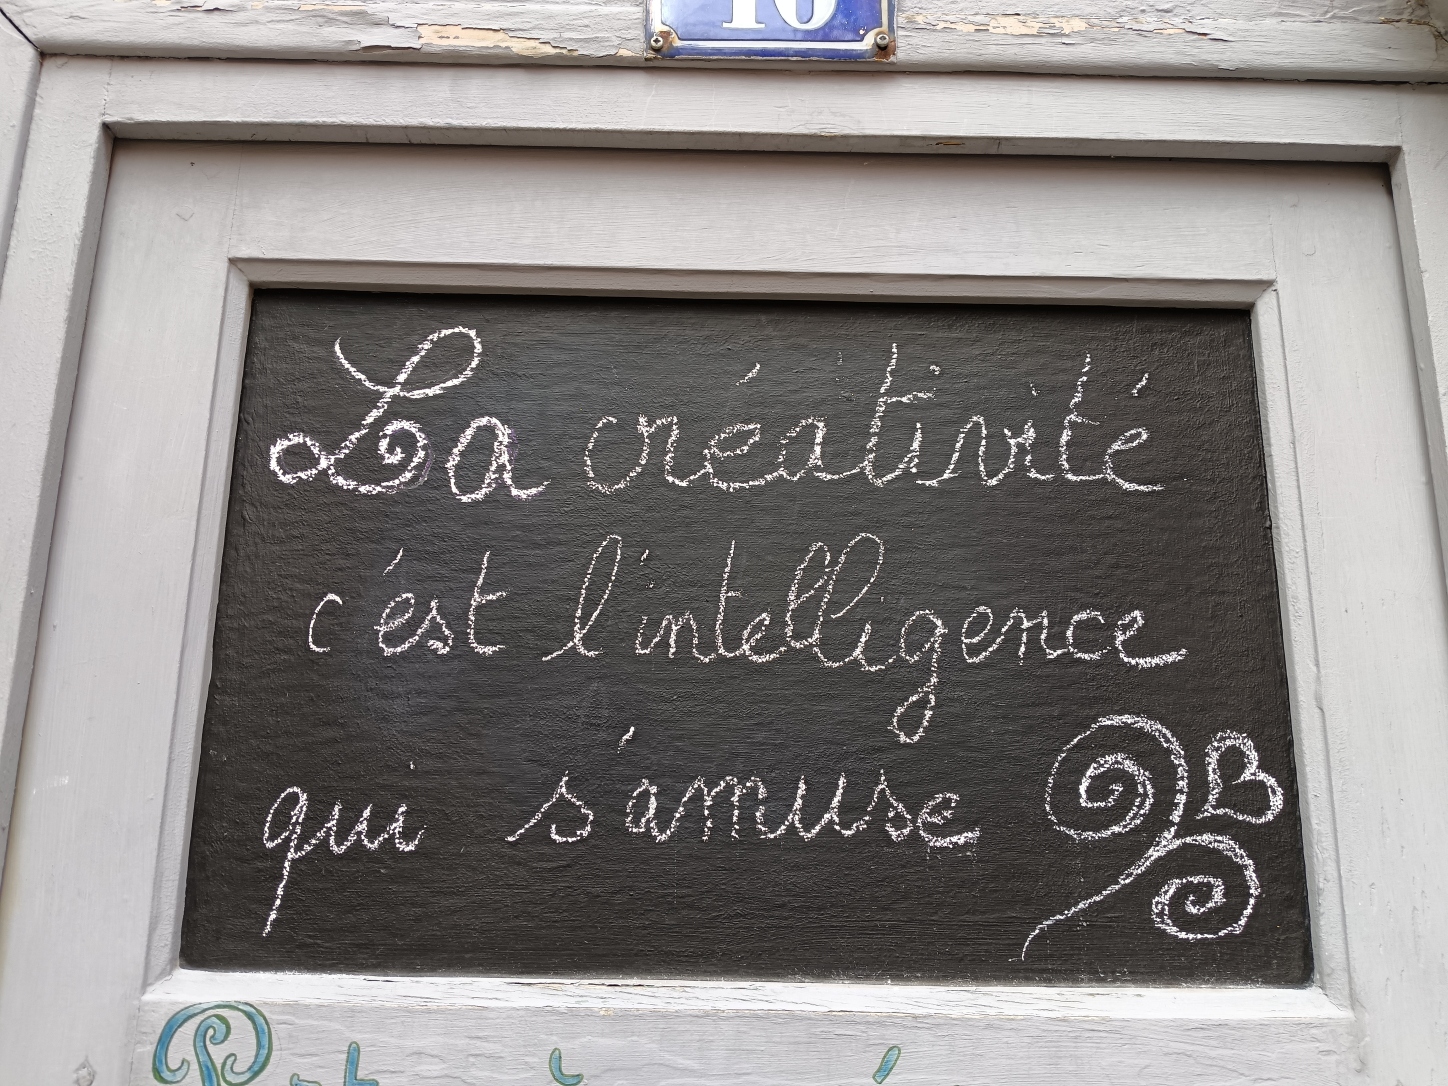 La créativité
c'est l'intelligence
qui s'amuse